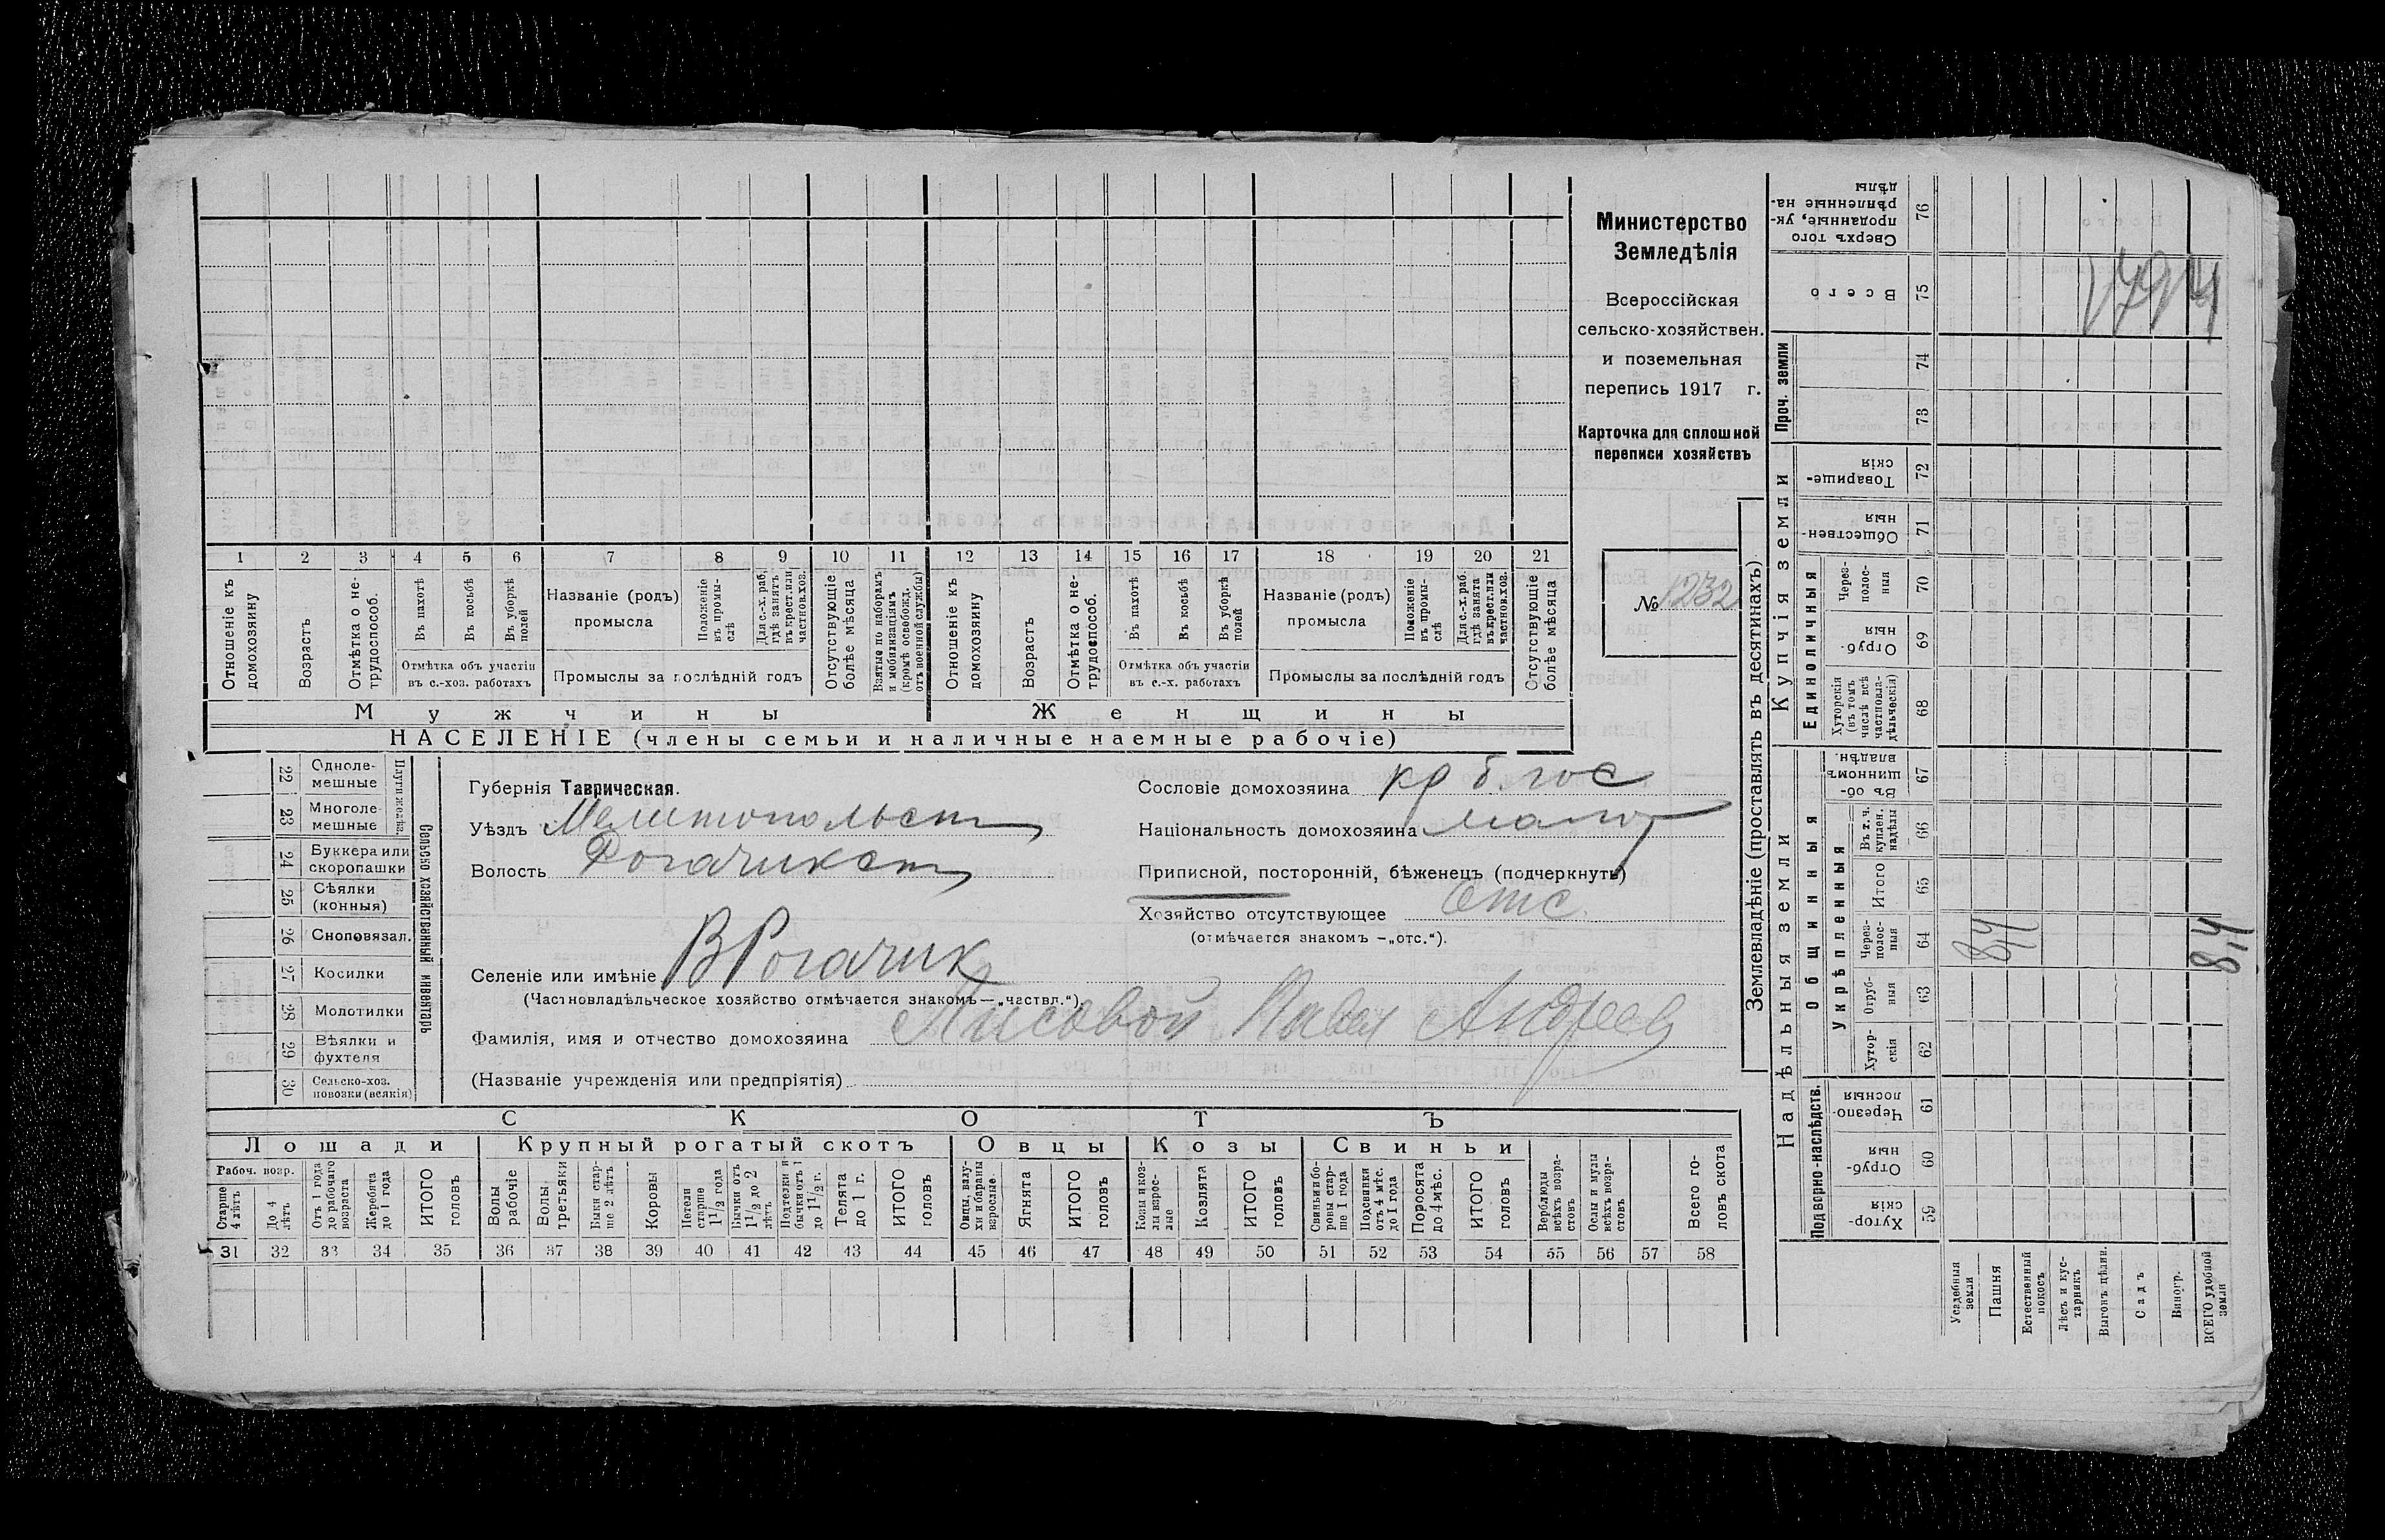 Министерство
Земледѣлія
Всероссійская
сельско-хозяйствен.
и поземельная
перепись 1917 г.
Карточка для сплошной
переписи хозяйствъ
№ 1232
1 2 3 4 5 6 7 8 9 10 11 12 13 14 15 16 17 18 19 20 21
Отношеніе къ домохозяину
Возрастъ
Отмѣтка о не-трудоспособ.
Въ пахотѣ
Въ косьбѣ
Въ уборкѣ полей
Отмѣтка объ участіи
въ с.-хоз. работахъ
Названіе (родъ)
промысла
Положеніе въ промы-слѣ
Для с.-х. раб. гдѣ занятъ въ крест. или частнов. хоз.
Промыслы за послѣдній годъ
Отсутствующіе болѣе мѣсяца
Взятые по наборамъ и мобилизаціямъ (кромѣ освобожд. отъ военной службы)
Отношеніе къ домохозяину
Возрастъ
Отмѣтка о не-трудоспособ.
Въ пахотѣ
Въ косьбѣ
Въ уборкѣ полей
Отмѣтка объ участіи
въ с.-х. работахъ
Названіе (родъ)
промысла
Положеніе въ промы-слѣ
Для с.-х. раб. гдѣ занята въ крест. или частнов. хоз.
Промыслы за послѣдній годъ
Отсутствующіе болѣе мѣсяца
Мужчины Женщины
НАСЕЛЕНІЕ (члены семьи и наличные наемные рабочіе)
22 Одноле-мешные
23 Многоле-мешные
24 Буккера или скоропашки
25 Сѣялки (конныя)
26 Сноповязал.
27 Косилки
28 Молотилки
29 Вѣялки и фухтеля
30 Сельско-хоз. повозки (всякія)
Сельско хозяйственный инвентарь
Губернія Таврическая.
Уѣздъ Мелитопольск
Волость Рогачикск
Селеніе или имѣніе В Рогачик
(Частновладѣльческое хозяйство отмѣчается знакомъ—„частвл.“).
Фамилія, имя и отчество домохозяина Лисовой Павел Андреев
(Названіе учрежденія или предпріятія)
Сословіе домохозяина кр б. гос
Національность домохозяина малор
Приписной, посторонній, бѣженецъ (подчеркнуть)
Хозяйство отсутствующее Отс.
(отмѣчается знакомъ —„отс.“).
СКОТЪ
Лошади Крупный рогатый скотъ Овцы Козы Свиньи
Рабоч. возр.
Старше 4 лѣтъ
До 4 лѣтъ
Отъ 1 года до рабочаго возраста
Жеребята до 1 года
ИТОГО головъ
Волы рабочіе
Волы третьяки
Быки стар-ше 2 лѣтъ
Коровы
Нетели старше 1½ года
Бычки отъ 1½ до 2 лѣтъ
Подтелки и бычки отъ 1 до 1½ г.
Телята до 1 г.
ИТОГО головъ
Овцы, валу-хи и бараны взрослые.
Ягнята
ИТОГО головъ
Козы и коз-лы взрос-лые
Козлята
ИТОГО головъ
Свиньи и бо-ровы стар-ше 1 года
Подсвинки отъ 4 мѣс. до 1 года
Поросята до 4 мѣс.
ИТОГО головъ
Верблюды всѣхъ возра-стовъ
Ослы и мулы всѣхъ возра-стовъ
Всего го-ловъ скота
31 32 33 34 35 36 37 38 39 40 41 42 43 44 45 46 47 48 49 50 51 52 53 54 55 56 57 58
Землевладѣніе (проставлять въ десятинахъ)
Надѣльныя земли
Купчія земли
Проч. земли
Подворно-наслѣдств.
Общинныя
Укрѣпленныя
Единоличныя
Сверхъ того проданные, ук-рѣпленные на-дѣлы 76
Всего 75
74
73
Товарище-скія 72
Обществен-ныя 71
Через-полос-ныя 70
Отруб-ныя 69
Хуторскія (въ томъ числѣ всѣ частновла-дѣльческія) 68
Въ об-щинномъ владѣн. 67
Въ т. ч. куплен. надѣлы 66
Итого 65
Через-полос-ныя 64
Отруб-ныя 63
Хутор-скія 62
Черезпо-лосныя 61
Отруб-ныя 60
Хутор-скія 59
8,4
8,4
Усадебныя земли
Пашня
Естественный покосъ
Лѣсъ и кус-тарникъ
Выгонъ цѣлин.
Садъ
Виногр.
ВСЕГО удобной земли